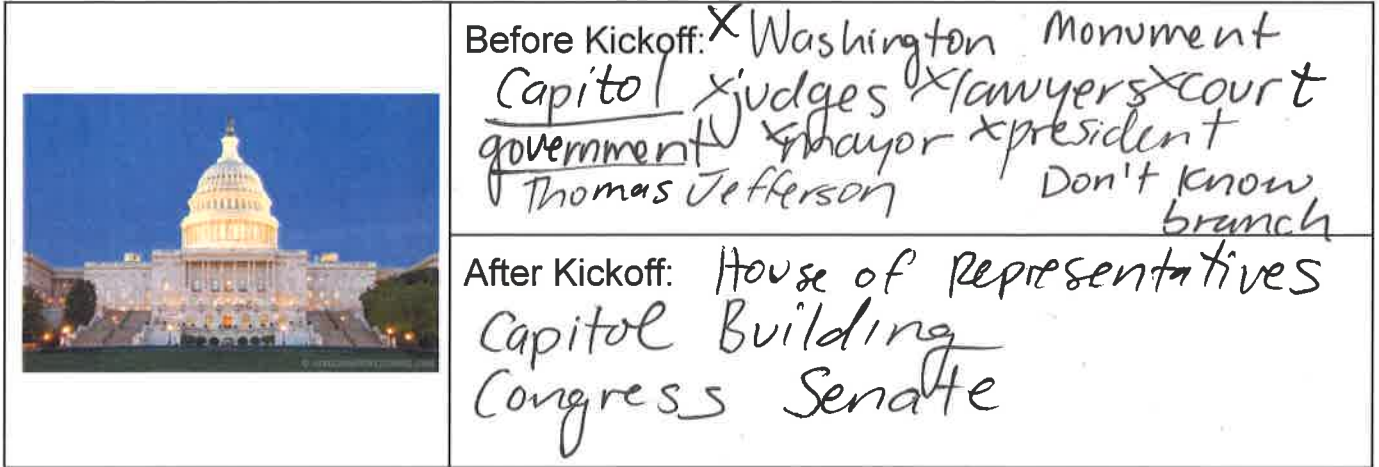 Before Kickoff: x Washington Monument
Capitol xjudges xlawyers xcourt
government xmayor xpresident
Thomas Jefferson Don't know
branch
After Kickoff: House of Representatives
Capitol Building
Congress Senate